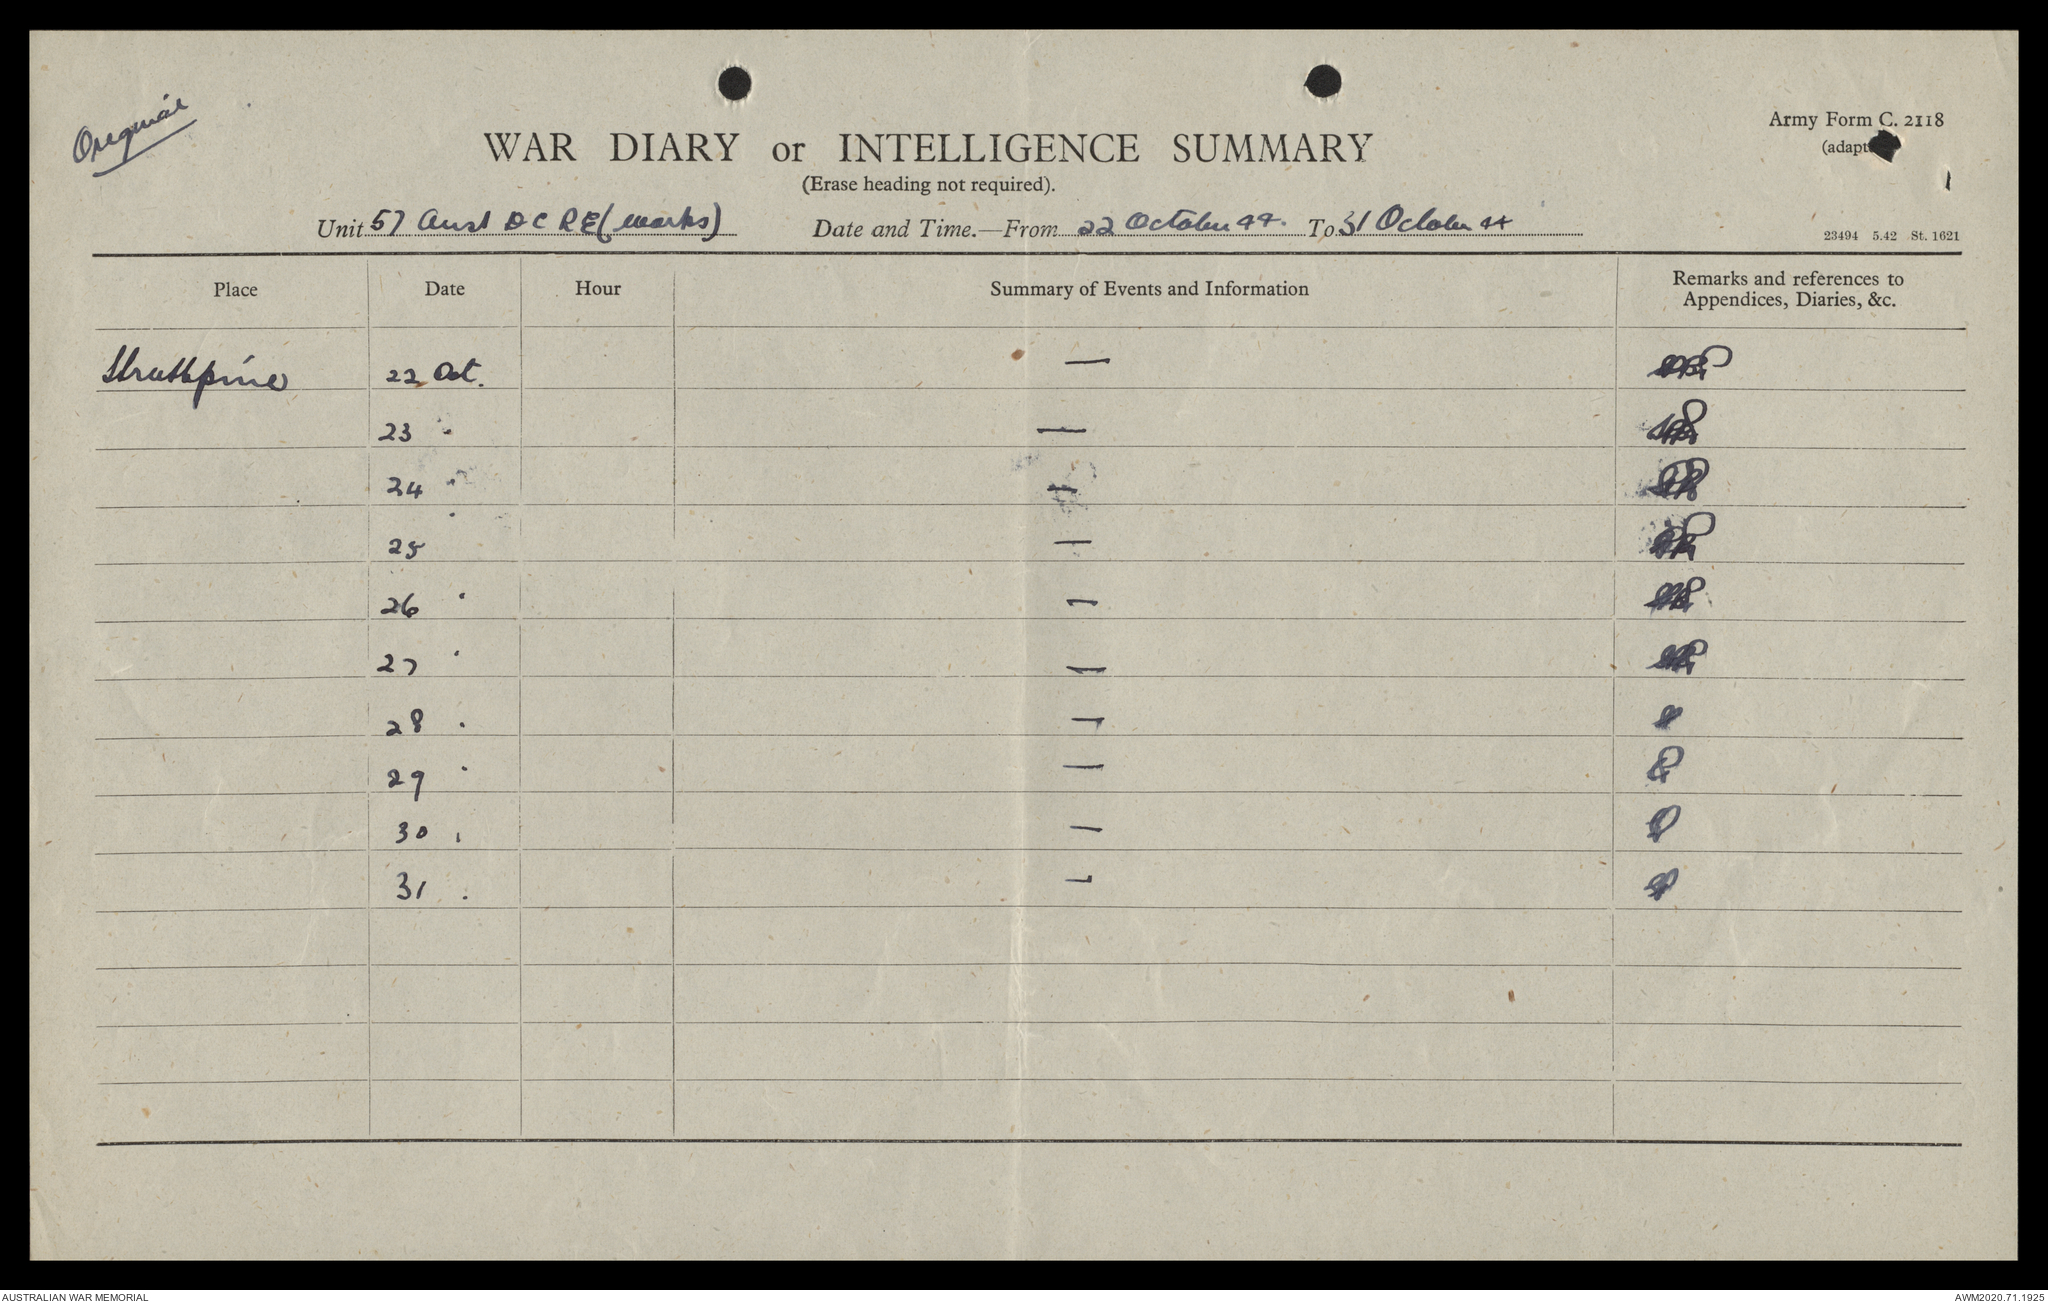 Original
WAR DIARY or INTELLIGENCE SUMMARY
(Erase heading not required).
Army Form C. 2118
(adapt
1
Unit 57 Aust D C R E (Works) Date and Time.—From 22 October 44. To 31 October 44
23494 5.42 St. 1621
Place Date Hour Summary of Events and Information Remarks and references to Appendices, Diaries, &c.
Strathpine 22 Oct. —
23 " —
24 " —
25 " —
26 " —
27 " —
28 " —
29 " —
30 " —
31 " —
AUSTRALIAN WAR MEMORIAL
AWM2020.71.1925